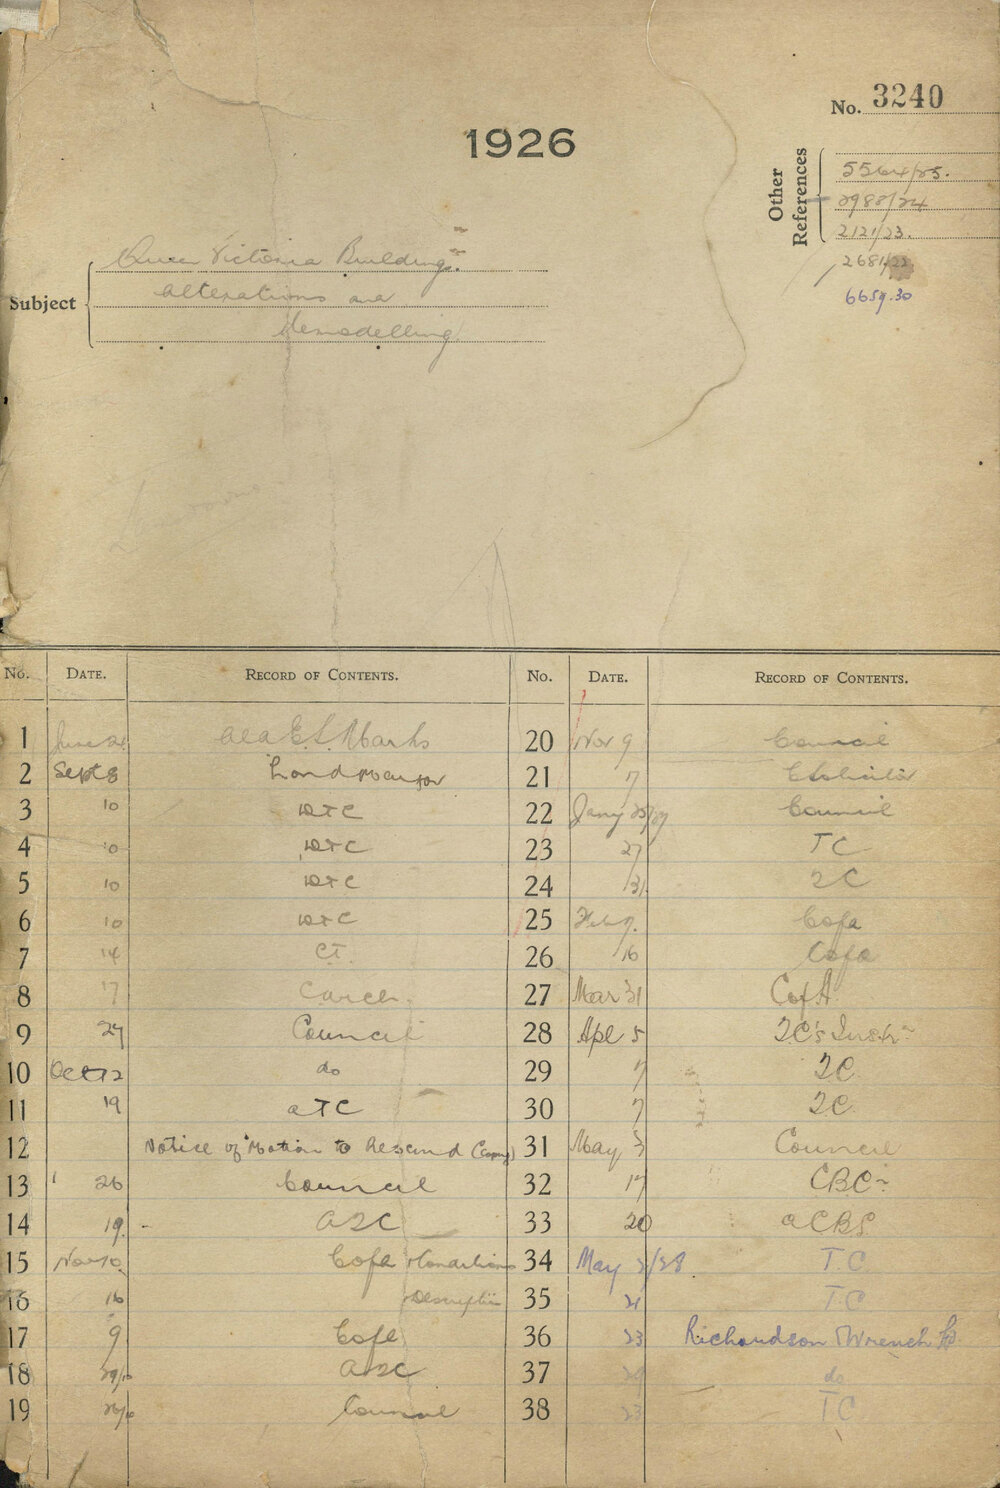 No. 3240
1926
Other References
5564/25.
2988/24
2121/23.
2681/22
6659.30
Subject
Queen Victoria Building.
alterations and
remodelling
No. DATE. RECORD OF CONTENTS. No. DATE. RECORD OF CONTENTS.
1 June 24 Ald E.S. Marks 20 Nov 9 Council
2 Sept 8 Lord Mayor 21 7 C Solicitor
3 10 DTC 22 Jany 25/27 Council
4 10 DTC 23 27 TC
5 10 DTC 24 31 2C
6 10 DTC 25 Feb 9. CofA
7 14 CT. 26 16 CofA
8 17 27 Mar 31 C of A
9 27 Council 28 Apl 5 2C's Instrn
10 Oct 12 do 29 7 2C
11 19 aTC 30 7 2C
12 Notice of Motion to Rescind (Copy) 31 May 3 Council
13 26 Council 32 17 CBC
14 19. A2C 33 20 aCBS
15 Nov 10 CofA Conditions 34 May 2/28 T.C.
16 16 Description 35 21 TC
17 9 CofA 36 23 Richardson Wrench Ld.
18 29/10 A2C 37 29 do
19 26/10 Council 38 23 TC